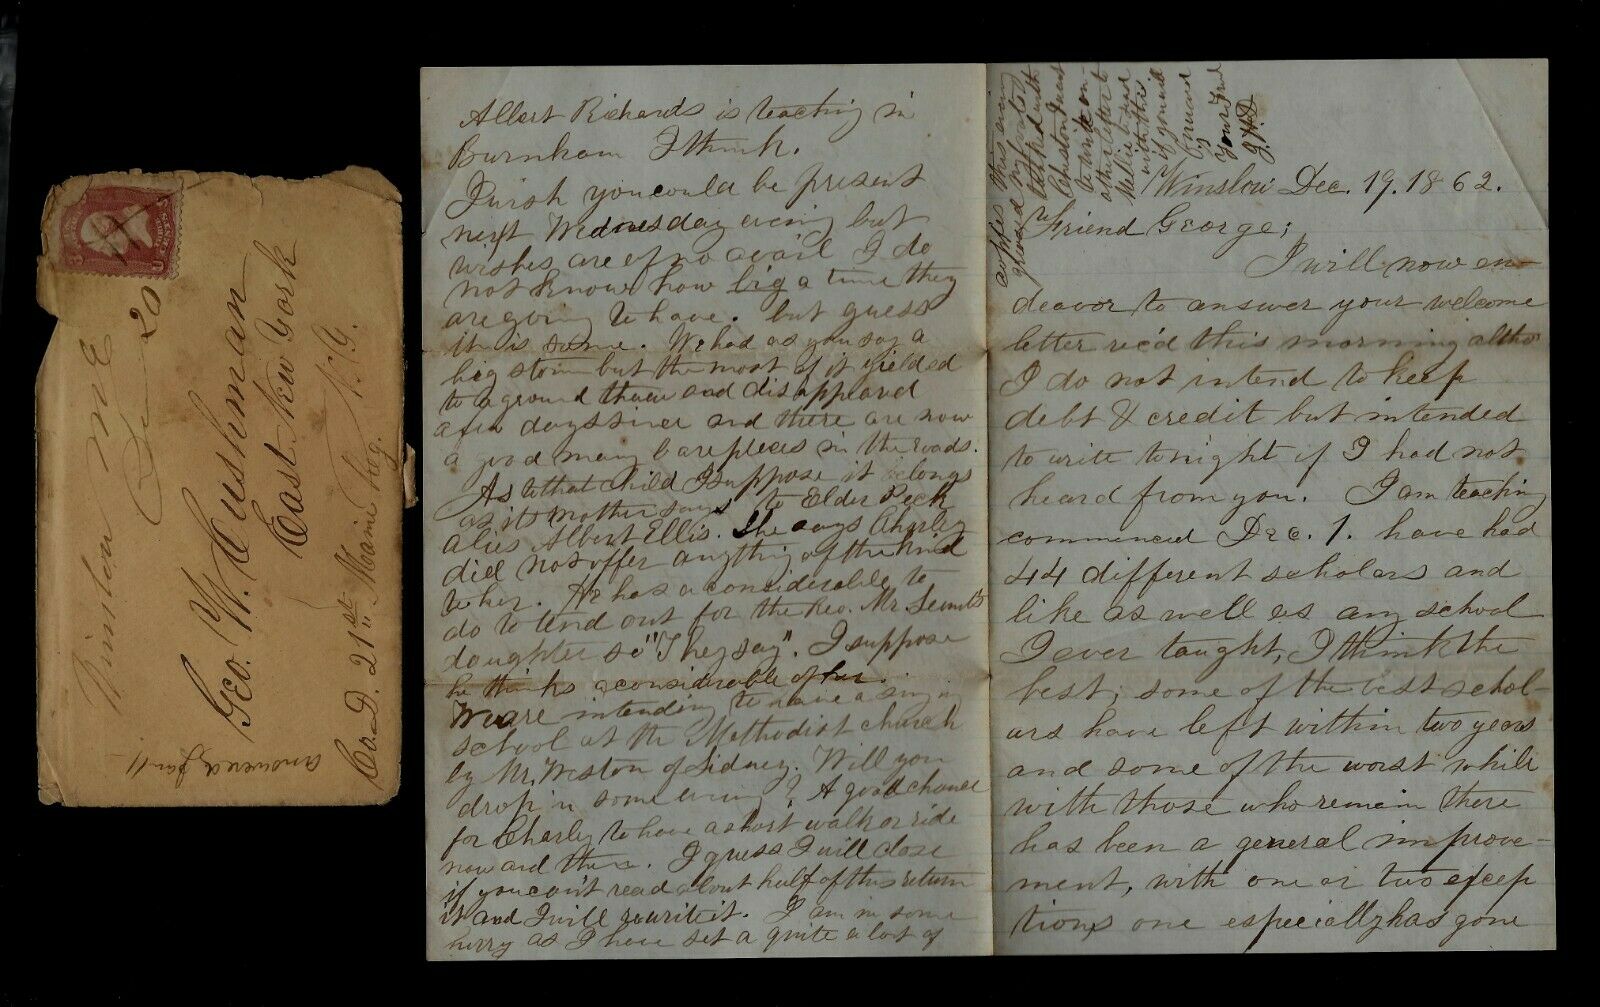 Winslow ME
Dec 20
Geo. W. Cushman
East New York
Co. D. 21st Maine Reg. N.Y.
answered Jan 11
Winslow Dec. 19. 1862.
Friend George;
I will now en-
deavor to answer your welcome
letter rec'd this morning altho
I do not intend to keep
debt & credit but intended
to write tonight if I had not
heard from you. I am teaching
commenced Dec. 1. have had
44 different scholars and
like as well as any school
I ever taught, I think the
best; some of the best schol-
ars have left within two years
and some of the worst while
with those who remain there
has been a general improve-
ment, with one or two excep
tions one especially has gone
Albert Richards is teaching in
Burnham I think.
I wish you could be present
next Wednesday evening but
wishes are of no avail I do
not know how big a time they
are going to have. but guess
it is some. We had as you say a
big storm but the most of it yielded
to a ground thaw and disappeared
a few days since and there are now
a good many bare places in the roads.
As to that child I suppose it belongs
as its mother says to Elder Peck
alias Albert Ellis. She says Charley
did not offer anything of the kind
to her. He has a considerable to
do to tend out for the Rev. Mr
daughter so "They say". I suppose
he thinks a considerable of her.
We are intending to have a singing
school at the Methodist church
by Mr. Weston of Sidney. Will you
drop in some evening? A good chance
for Charley to have a short walk or ride
now and then. I guess I will close
if you can't read about half of this return
it and I will rewrite it. I am in some
hurry as I have set a quite a lot of
copies this evening
talked with
to write an-
other letter to
with this
if you will
Yours Trul